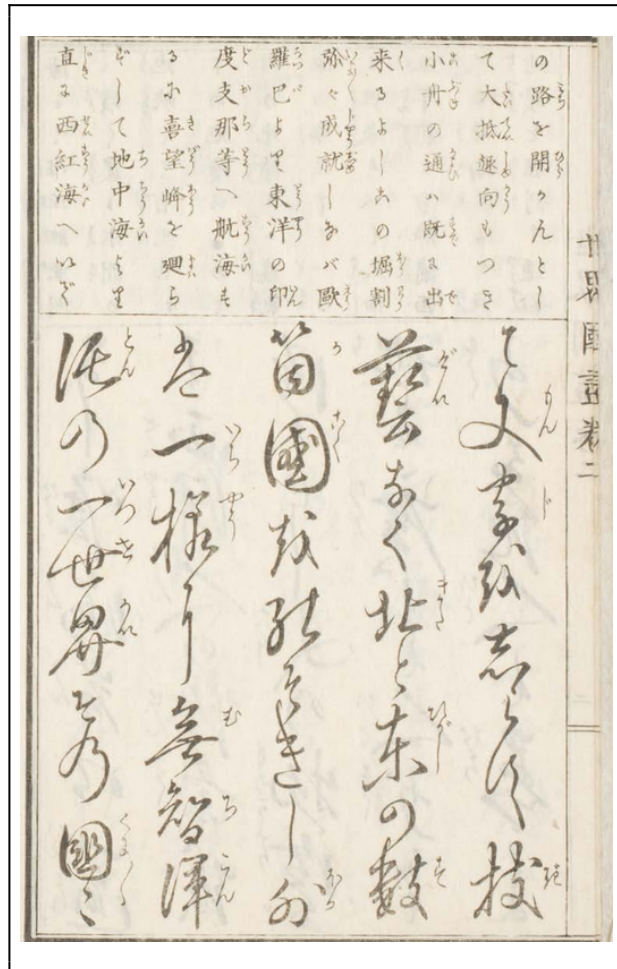 世界國盡卷二
の路を開かんとし
て大抵趣向もつき
小舟の通ハ既に出
来るよしこの堀割
弥々成就しなバ歐
羅巴より東洋の印
度支那等へ航海す
るに喜望峰を廻ら
ずして地中海より
直に西紅海へいで
て文字を志らず技
藝なく北と東の数
箇國をのぞきし外
は一様に無智渾
沌の一世界その國々